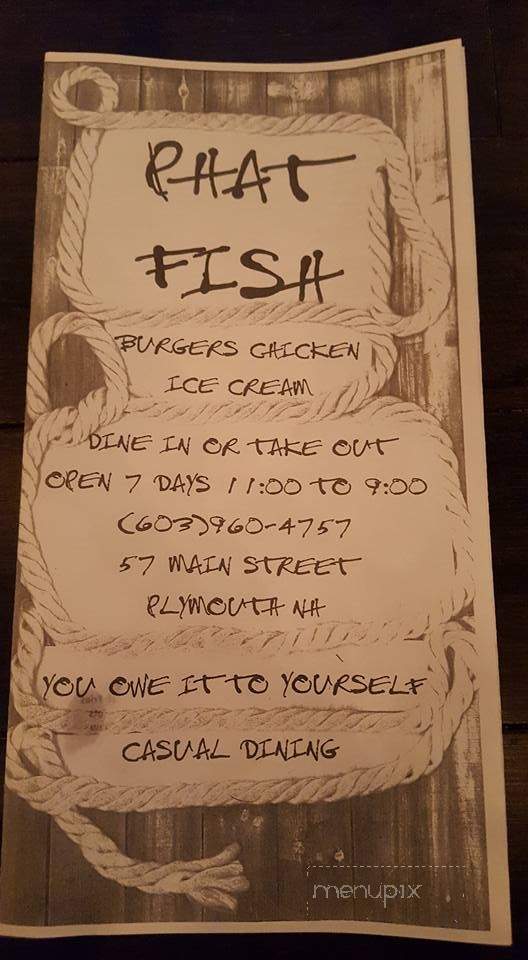 PHAT
FISH
BURGERS CHICKEN
ICE CREAM
DINE IN OR TAKE OUT
OPEN 7 DAYS 11:00 TO 9:00
(603)960-4757
57 MAIN STREET
PLYMOUTH NH
YOU OWE IT TO YOURSELF
CASUAL DINING
menupix